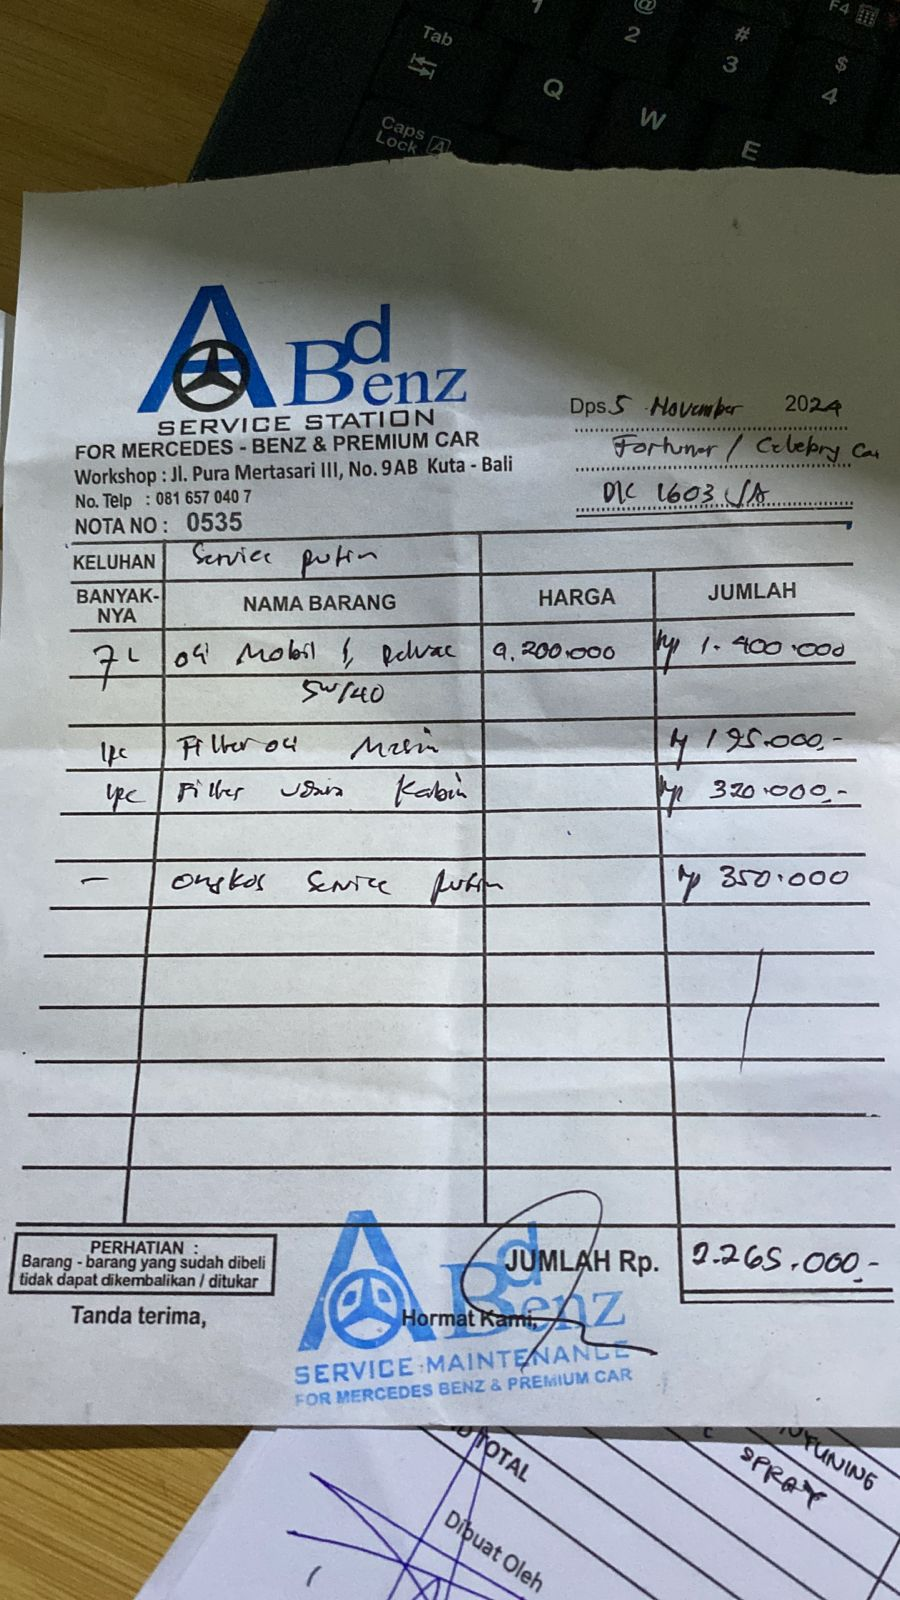 Tab
Caps
Lock
A
Q
W
E
1
@
2
#
3
$
4
F4
A Bd Benz
SERVICE STATION
FOR MERCEDES - BENZ & PREMIUM CAR
Workshop : Jl. Pura Mertasari III, No. 9AB Kuta - Bali
No. Telp : 081 657 040 7
NOTA NO : 0535
Dps. 5 November 2024
Fortuner / Celebry Car
DK 1603
KELUHAN Service rutin
BANYAK-NYA NAMA BARANG HARGA JUMLAH
7 L oli Mobil 1, 200.000 Rp 1.400.000
5W/40
1pc Filter oli Mesin Rp 195.000,-
1pc Filter udara Kabin Rp 320.000,-
- ongkos service rutin Rp 350.000
JUMLAH Rp. 2.265.000,-
PERHATIAN :
Barang - barang yang sudah dibeli
tidak dapat dikembalikan / ditukar
Tanda terima,
Hormat Kami,
A Bd Benz
SERVICE MAINTENANCE
FOR MERCEDES BENZ & PREMIUM CAR
TOTAL
Dibuat Oleh
TUNING
SPRAY